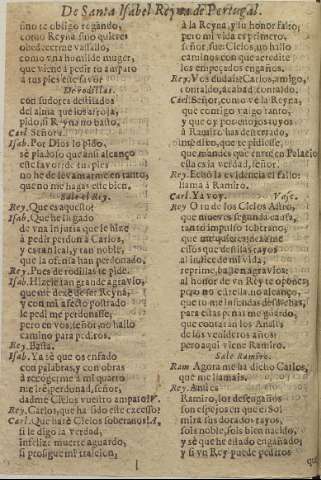 De Santa Isabel Reyna de Portugal.
sino te obligo rogando,
como Reyna sino quieres
obedecerme vassallo,
como vna humilde muger,
que viene à pedir tu amparo
à tus pies este favor
De rodillas.
con sudores destilados
del alma que los arroja,
pido, si Reyna no basto.
Carl. Señora.
Isab. Por Dios lo pido,
se piadoso que aun si alcanço
este favor de tu pie
no he de levantarme en tanto,
que no me hagas este bien.
Sale el Rey.
Rey. Que es aquesto?
Isab. Que he llegado
de vna injuria que le hize
à pedir perdon à Carlos,
y es tan leal, y tan noble,
que la ofensa han perdonado,
Rey. Pues de rodillas te pide.
Isab. Hizele tan grande agravio,
que me dexè de ser Reyna,
y con mi afecto postrado
le pedì me perdonasse,
pero en vos, señor, no hallo
camino para pediros.
Rey. Basta.
Isab. Ya sè que os enfado
con palabras, y con obras
à recogerme à mi quarto
me irè, perdonad, señor,
dadme Cielos vuestro amparo? V.
Rey. Carlos, que ha sido este excesso?
Carl. Que harè Cielos soberanos!
si le digo la verdad,
infelize muerte aguardo,
si prosigue mi traicion,
à la Reyna, y su honor falto;
pero mi vida es primero,
señor, sue Cielos, no hallo
caminos con que acredite
los empeçados engaños.
Rey. Vos dudais? Carlos, amigo,
contaldo, acabad, contaldo.
Carl. Señor, como ve la Reyna,
que contigo valgo tanto,
y que y por enojos tuyos
à Ramiro has desterrado,
me dixo, que te pidiesse,
que mandes que entre en Palacio
esta es la verdad, señor.
Rey. Echò la evidencia el fallo:
llama à Ramiro.
Carl. Ya voy. Vase.
Rey. O tu de los Cielos Astro,
que mueves segunda causa,
tanto impulso soberano,
que
ellos que destilas rayos
al indice de mi vida,
reprime, baste en agravios;
al honor de vn Rey te opones;
pero no estrella, no alcanço,
que tu me infundas desdichas,
para ellas penas me guardo,
que contaràn los Anales
de los venideros años:
pero aqui viene Ramiro.
Sale Ramiro.
Ram. Agora me ha dicho Carlos,
que me llamais.
Rey.
Ramiro, los desengaños
son espejos en que el Sol
mira sus dorados rayos,
sois noble, sois bien nacido,
y sè que he estado engañado;
y si vn Rey puede pediros